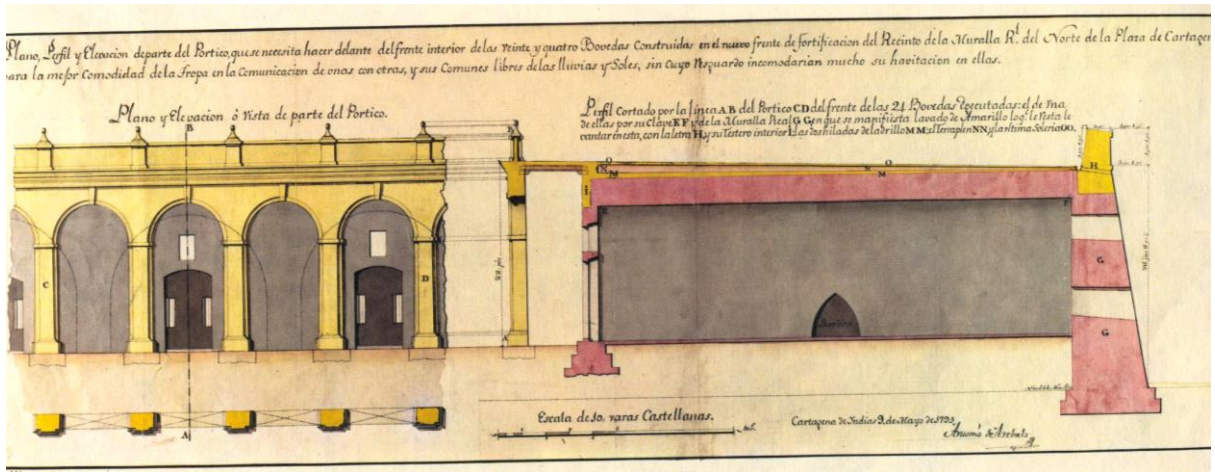 Plano, Perfil y Elevacion departe del Portico, que se necesita hacer delante del frente interior de las veinte y quatro Bovedas Construidas en el nuevo frente de fortificacion del Recinto de la Muralla R.l del Norte de la Plaza de Cartagen
para la mejor Comodidad de la Tropa en la Comunicacion de unas con otras, y sus Comunes libres de las lluvias y Soles, sin cuyo resguardo incomodarian mucho su havitacion en ellas.
Plano y Elevacion ó Vista de parte del Portico.
Perfil Cortado por la linea AB del Portico CD del frente de las 24 Bovedas executadas: el de una
de ellas por su Clave EF y de la Muralla Real GG en que se manifiesta lavado de Amarillo loq.e le resta le
vantar en esta, con la letra H, y su Testero interior I: las dos hiladas de ladrillo MM: el Terraplen NN y la ultima Soleria OO.
B
O
O
N
M
N
M
H
I
E
F
G
G
C
D
A
Escala de 10. varas Castellanas.
Cartagena de Indias 9. de Mayo de 1793.